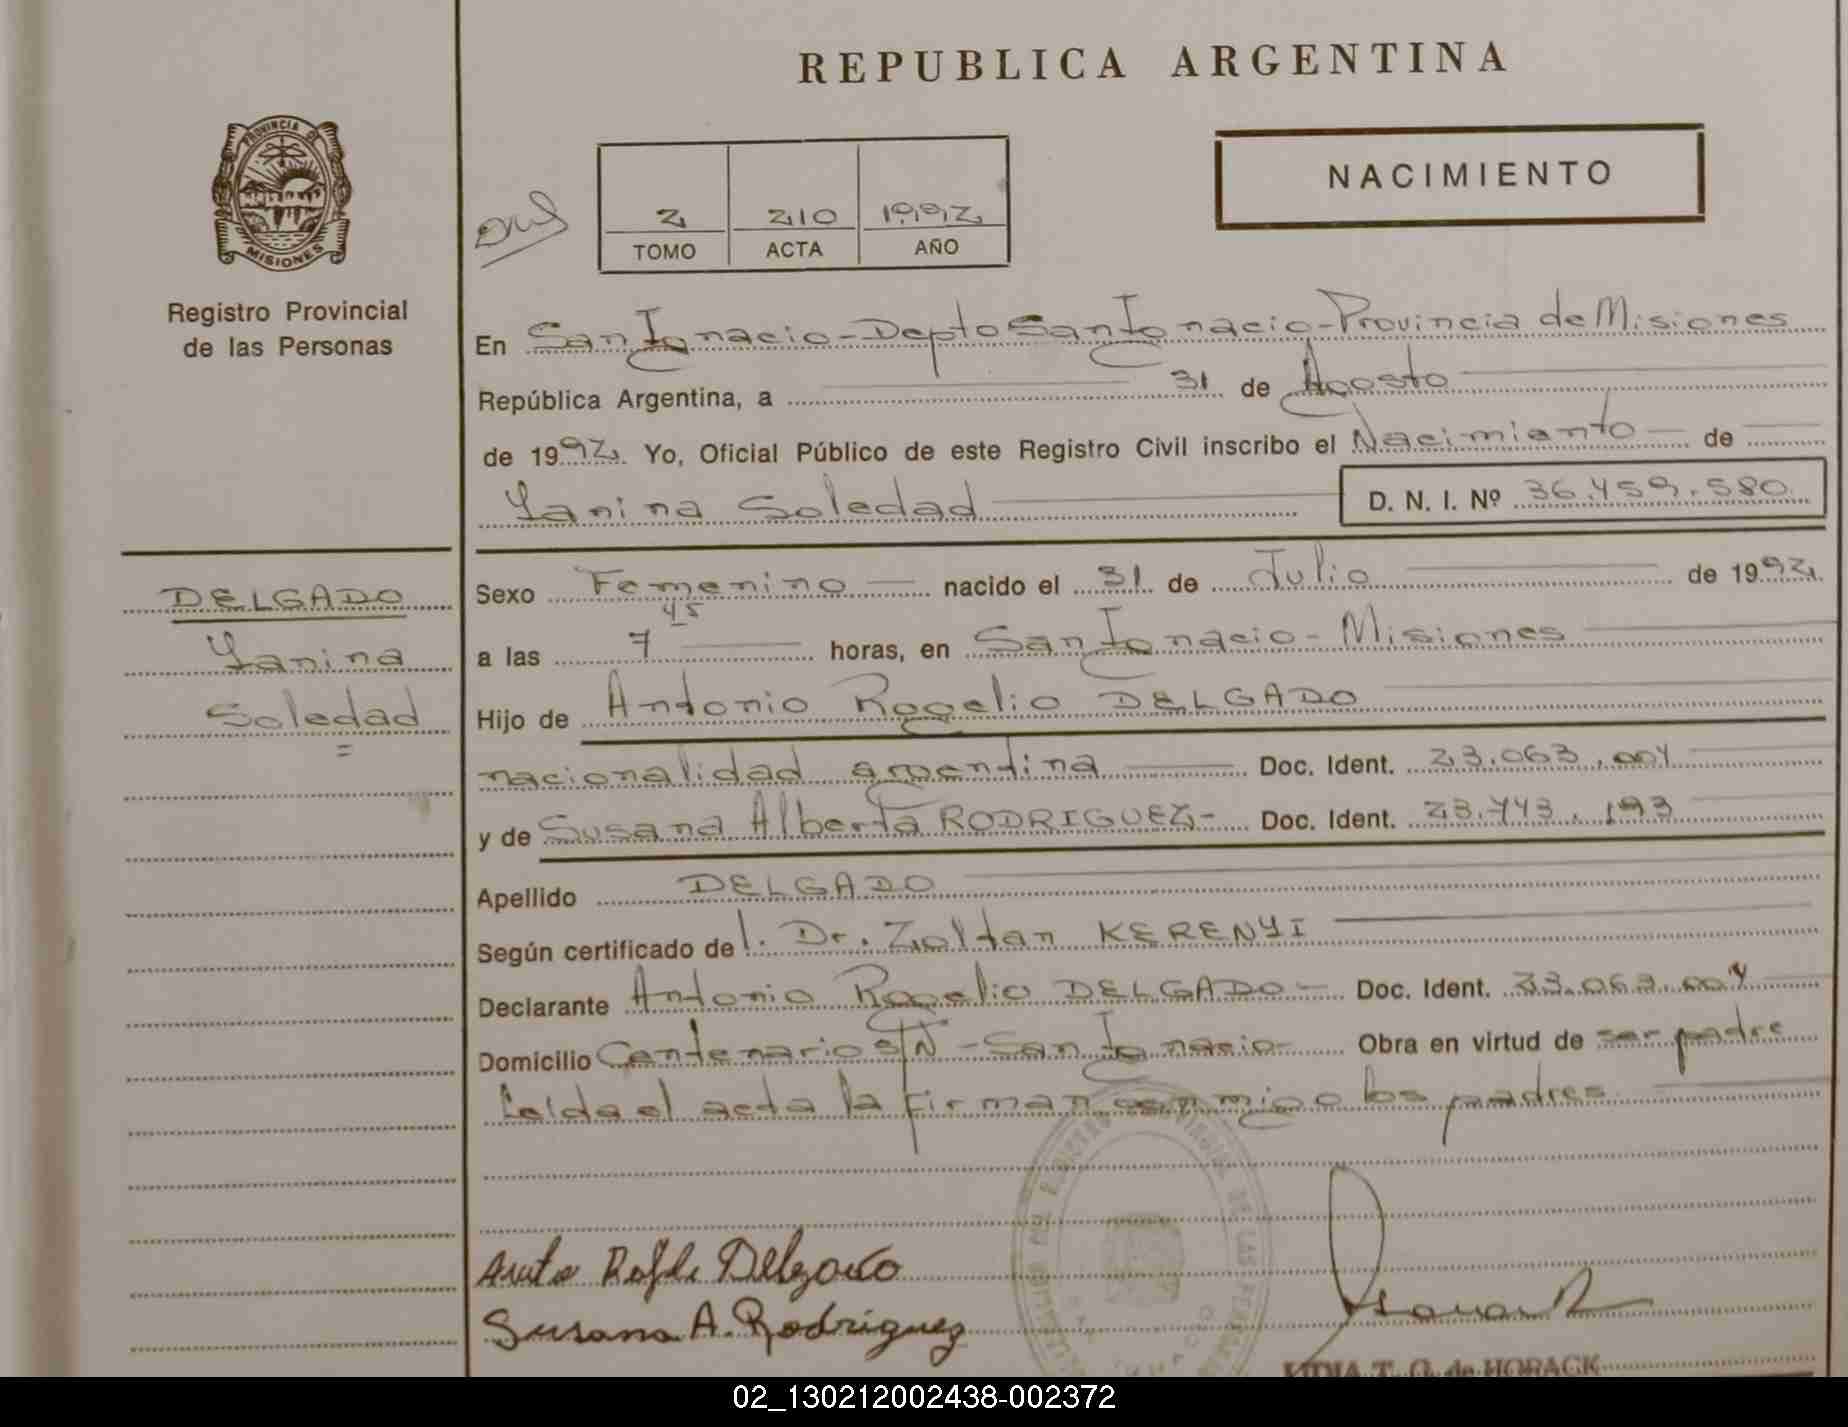 REPUBLICA ARGENTINA
PROVINCIA DE
MISIONES
Registro Provincial
de las Personas
NACIMIENTO
2 210 1992
TOMO ACTA AÑO
En San Ignacio-Depto San Ignacio-Provincia de Misiones
República Argentina, a 31 de Agosto
de 1992 Yo, Oficial Público de este Registro Civil inscribo el Nacimiento de
Yanina Soledad D. N. I. Nº 36.459.580
DELGADO
Yanina
Soledad
Sexo Femenino nacido el 31 de Julio de 1992
a las 7 45 horas, en San Ignacio - Misiones
Hijo de Antonio Rogelio DELGADO
nacionalidad argentina Doc. Ident. 23.063.004
y de Susana Alberta RODRIGUEZ- Doc. Ident. 23.743.193
Apellido DELGADO
Según certificado de l. Dr. Zoltan KERENYI
Declarante Antonio Rogelio DELGADO- Doc. Ident. 23.063.004
Domicilio Centenario S/N - San Ignacio- Obra en virtud de ser padre
Leída el acta la firman conmigo los padres
Delgado
Susana A. Rodriguez
de HORACK
02_130212002438-002372